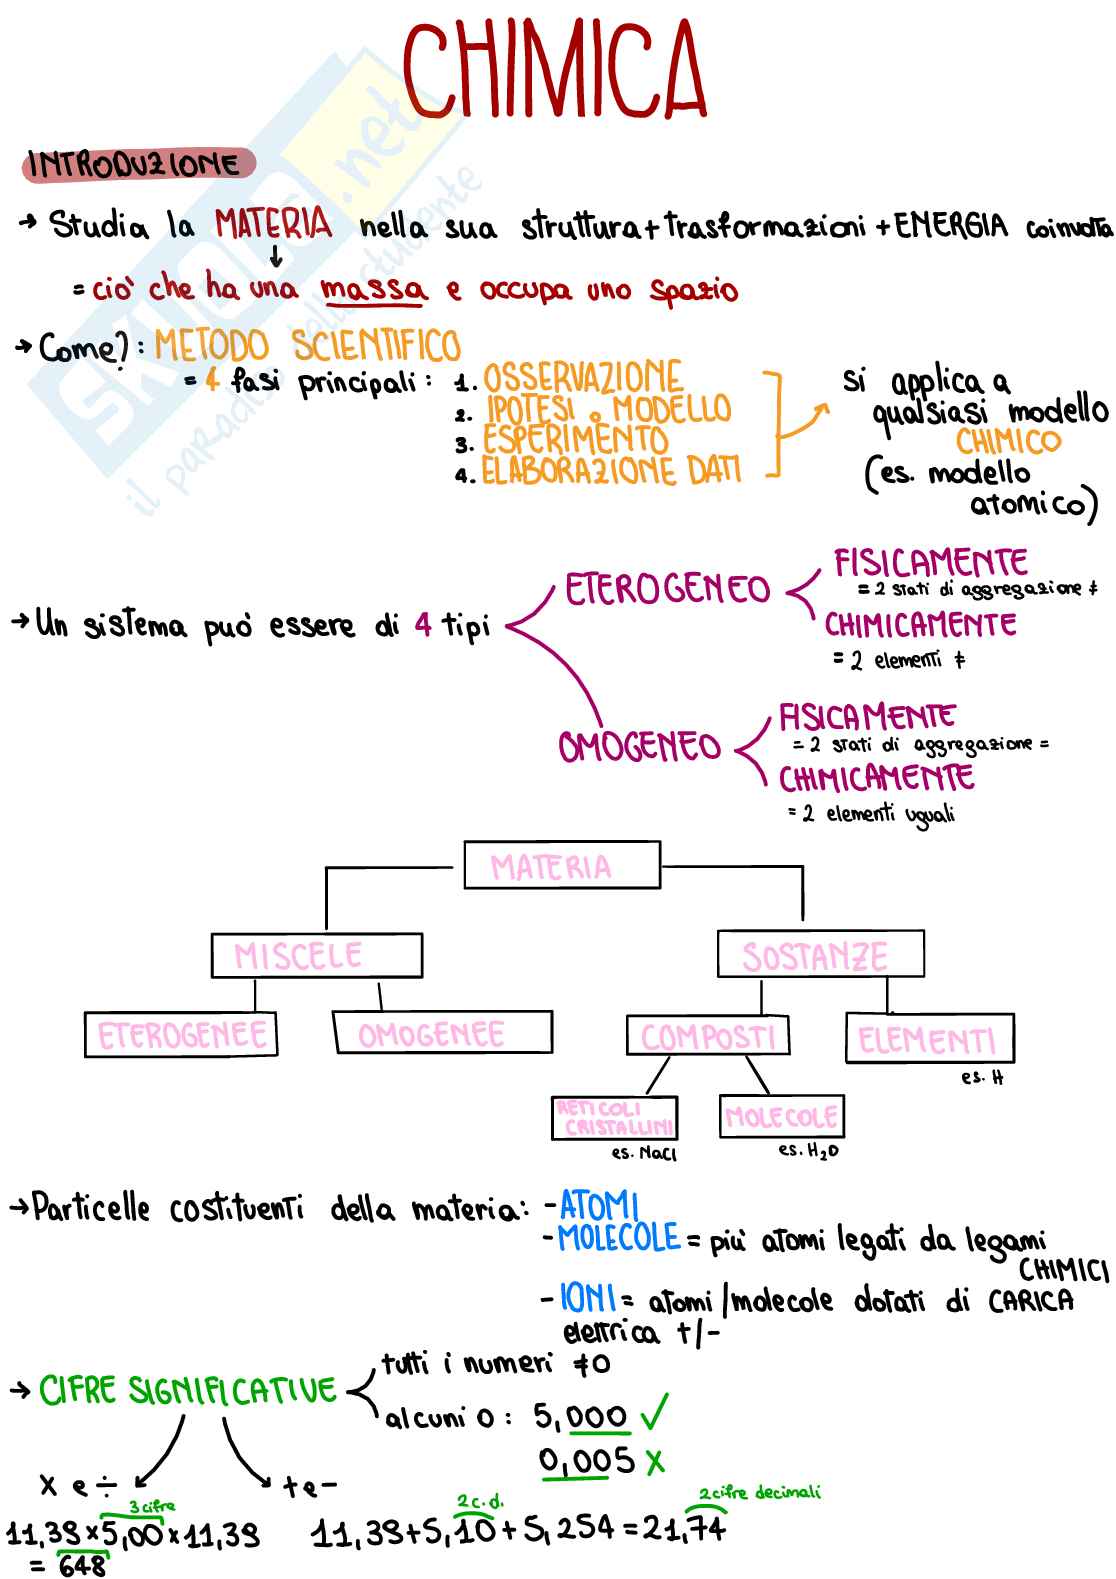 CHIMICA
INTRODUZIONE
→ Studia la MATERIA nella sua struttura+trasformazioni+ENERGIA coinvolta
= ciò che ha una massa e occupa uno spazio
→ Come?: METODO SCIENTIFICO
= 4 fasi principali: 1. OSSERVAZIONE
2. IPOTESI o MODELLO
3. ESPERIMENTO
4. ELABORAZIONE DATI
si applica a
qualsiasi modello
CHIMICO
(es. modello
atomico)
→ Un sistema può essere di 4 tipi
ETEROGENEO
FISICAMENTE
= 2 stati di aggregazione ≠
CHIMICAMENTE
= 2 elementi ≠
OMOGENEO
FISICAMENTE
= 2 stati di aggregazione =
CHIMICAMENTE
= 2 elementi uguali
MATERIA
MISCELE
SOSTANZE
ETEROGENEE
OMOGENEE
COMPOSTI
ELEMENTI
es. H
RETICOLI
CRISTALLINI
MOLECOLE
es. NaCl
es. H₂O
→ Particelle costituenti della materia: - ATOMI
- MOLECOLE = più atomi legati da legami
CHIMICI
- IONI = atomi/molecole dotati di CARICA
elettrica +/-
→ CIFRE SIGNIFICATIVE
tutti i numeri ≠0
alcuni 0: 5,000 ✓
0,005 x
x e ÷
+ e -
3 cifre
11,38×5,00×11,38
= 648
2 c.d.
2 cifre decimali
11,38+5,10+5,254=21,74
SKUOLA.net
il paradiso dello studente